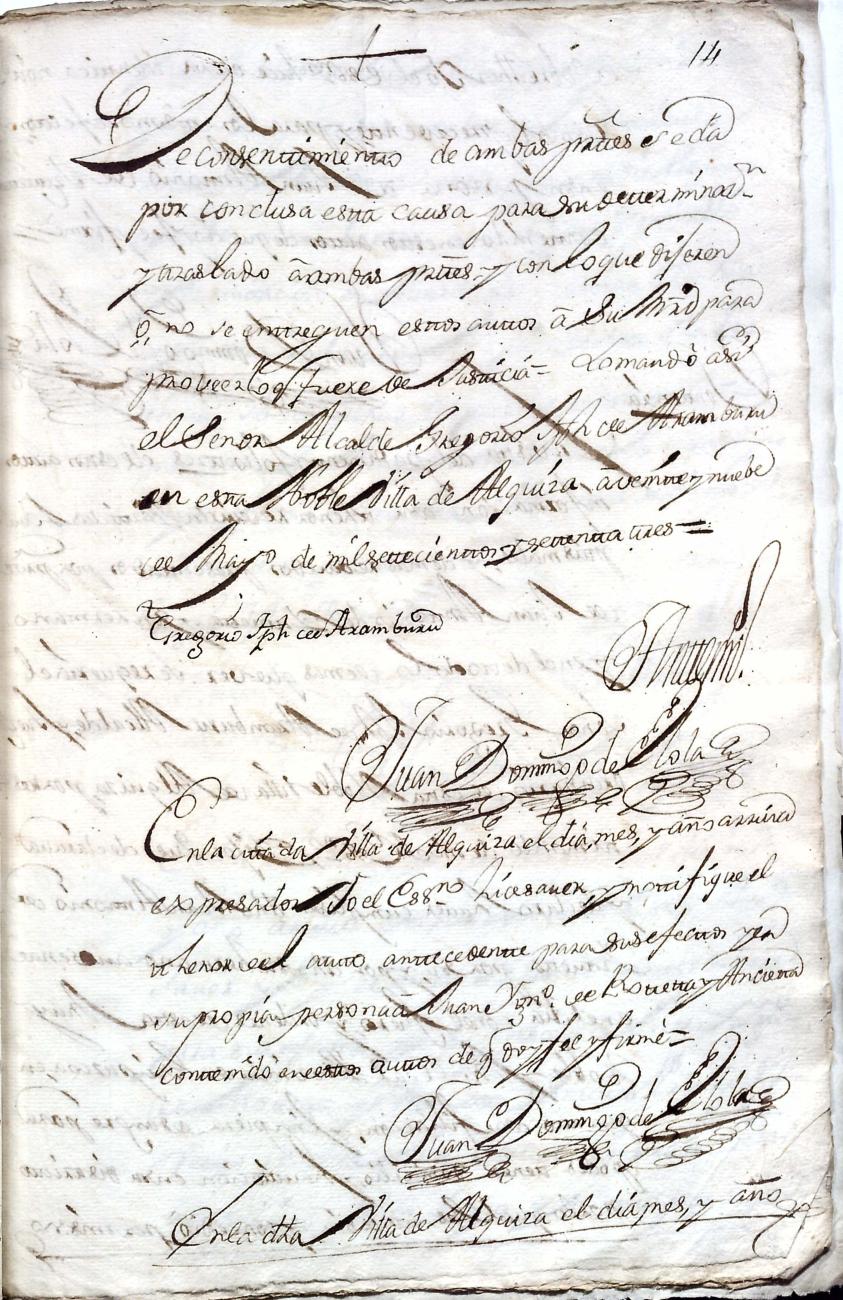 14
De consentimiento de ambas prtes se da
por conclusa esta causa para su determinaz.n
y traslado a ambas prtes y con lo que dijeren
o no se entreguen estos autos a Su Mrd para
proveer lo q fuere de Justicia = Lo mandò assi
el Senor Alcalde Gregorio Jph de Aramburu
en esta Noble Villa de Alquiza a veinte y nuebe
de Mayo de mil setecientos y setenta tres =
Gregorio Jph de Aramburu
Antemi
Juan Domingo de Llola
En la citada Villa de Alquiza el dia, mes, y año arriva
expresados Yo el Essno hice saver, y notifique el
thenor del auto antecedente para sus efectos y en
su propia persona a Juan Ygn.o de Roteta y Ancieta
contenido en estos autos de q doy fee y firmè =
Juan Domingo de Llola
En la dha Villa de Alquiza el dia, mes, y año